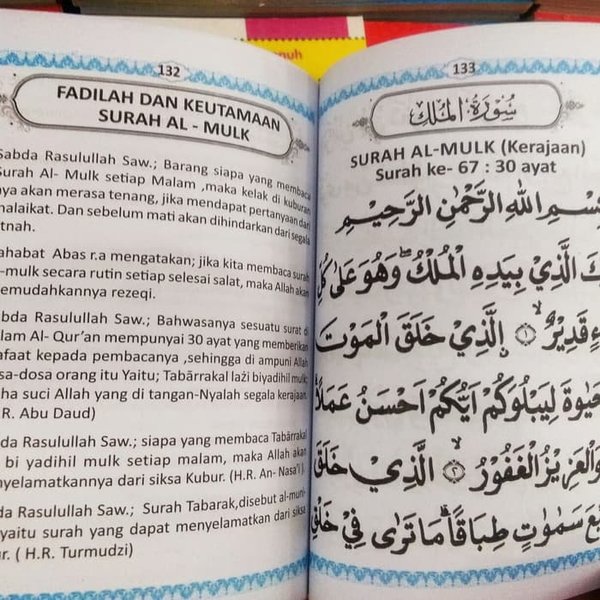 nuh
132
FADILAH DAN KEUTAMAAN
SURAH AL - MULK
Sabda Rasulullah Saw.; Barang siapa yang membaca
Surah Al- Mulk setiap Malam ,maka kelak di kuburan
nya akan merasa tenang, jika mendapat pertanyaan dari
malaikat. Dan sebelum mati akan dihindarkan dari segala
fitnah.
ahabat Abas r.a mengatakan; jika kita membaca surah
-mulk secara rutin setiap selesai salat, maka Allah akan
emudahkannya rezeqi.
bda Rasulullah Saw.; Bahwasanya sesuatu surat di
lam Al- Qur’an mempunyai 30 ayat yang memberikan
afaat kepada pembacanya ,sehingga di ampuni Allah
sa-dosa orang itu Yaitu; Tabārrakal lażi biyadihil mulk:
ha suci Allah yang di tangan-Nyalah segala kerajaan.
.R. Abu Daud)
da Rasulullah Saw.; siapa yang membaca Tabārrakal
bi yadihil mulk setiap malam, maka Allah akan
nyelamatkannya dari siksa Kubur. (H.R. An- Nasa'i )
da Rasulullah Saw.; Surah Tabarak,disebut al-muni-
yaitu surah yang dapat menyelamatkan dari siksa
ur. ( H.R. Turmudzi)
133
سُوْرَةُ الْمُلْكِ
SURAH AL-MULK (Kerajaan)
Surah ke- 67 : 30 ayat
بِسْمِ اللهِ الرَّحْمٰنِ الرَّحِيْمِ
كَ الَّذِيْ بِيَدِهِ الْمُلْكُۖ وَهُوَ عَلٰى كُلِّ
ءٍ قَدِيْرٌۙ ۝١ ۨالَّذِيْ خَلَقَ الْمَوْتَ
حَيٰوةَ لِيَبْلُوَكُمْ اَيُّكُمْ اَحْسَنُ عَمَلًاۗ
وَالْعَزِيْزُ الْغَفُوْرُۙ ۝٢ الَّذِيْ خَلَقَ
بْعَ سَمٰوٰتٍ طِبَاقًاۗ مَا تَرٰى فِيْ خَلْقِ